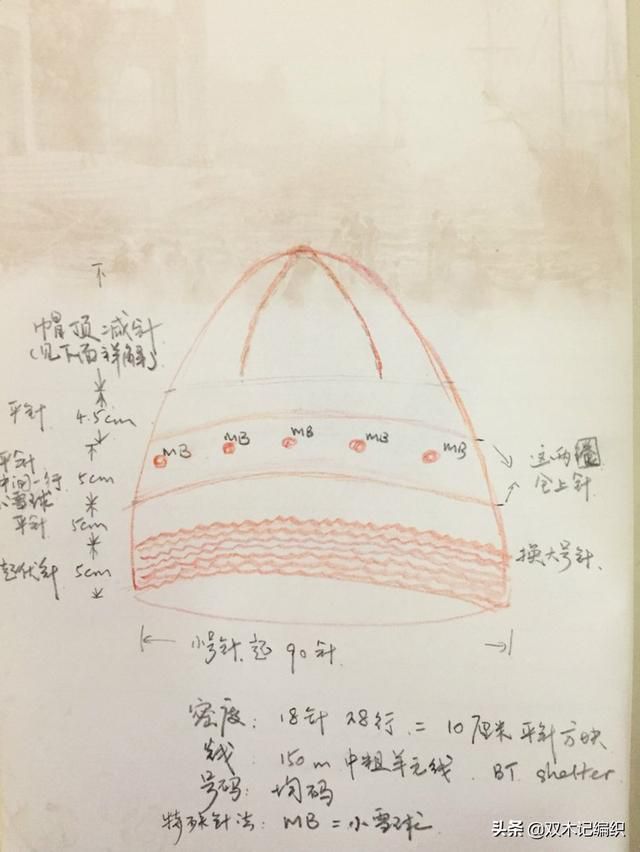 帽顶减针
(见下面详解)
平针 4.5cm
MB MB MB MB MB
平针
中间一行 5cm
小雪球
平针 5cm
起伏针 5cm
这两圈
全上针
换大号针
小号针起 90针
密度: 18针 28行 = 10厘米平针方块
线: 150m 中粗羊毛线 BT shelter
号码: 均码
特殊针法: MB = 小雪球
头条 @双木记编织